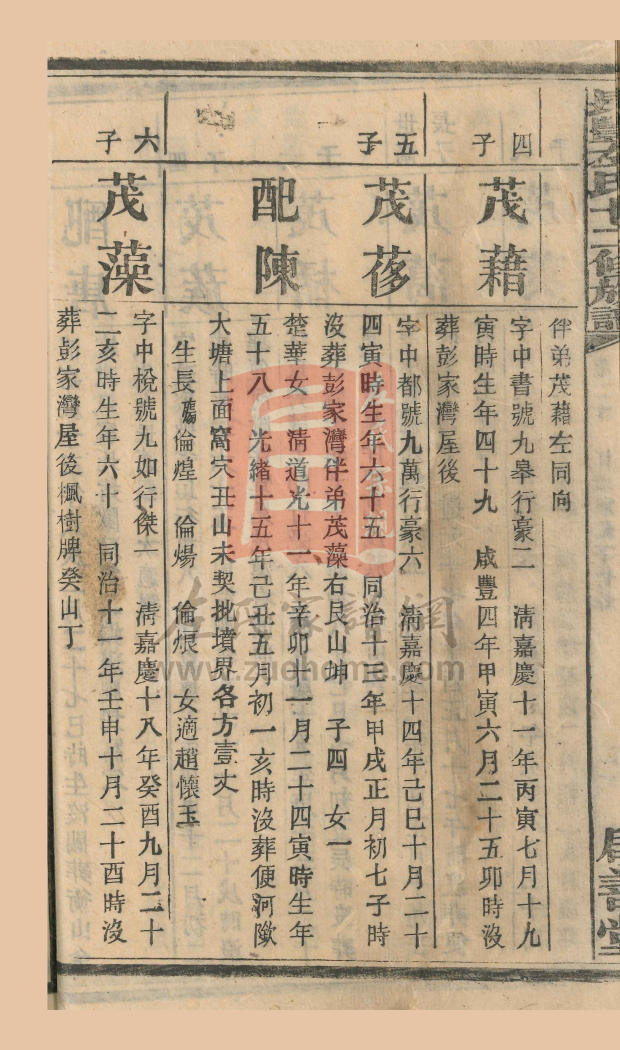 伴弟茂藉左同向
四子
茂藉
字中書號九皋行豪二　清嘉慶十一年丙寅七月十九
寅時生年四十九　咸豐四年甲寅六月二十五卯時沒
葬彭家灣屋後
五子
茂蓚
字中都號九萬行豪六　清嘉慶十四年己巳十月二十
四寅時生年六十五　同治十三年甲戌正月初七子時
沒葬彭家灣伴弟茂藻右艮山坤　子四　女一
配陳
楚華女　清道光十一年辛卯十一月二十四寅時生年
五十八　光緒十五年己丑五月初一亥時沒葬便河墈
大塘上面窩穴丑山未契批墳界各方壹丈
生長殤倫煌　倫煬　倫烺　女適趙懷玉
六子
茂藻
字中梲號九如行傑一　清嘉慶十八年癸酉九月二十
二亥時生年六十　同治十一年壬申十月二十酉時沒
葬彭家灣屋後楓樹牌癸山丁
左氏家譜網
www.zuohome.com